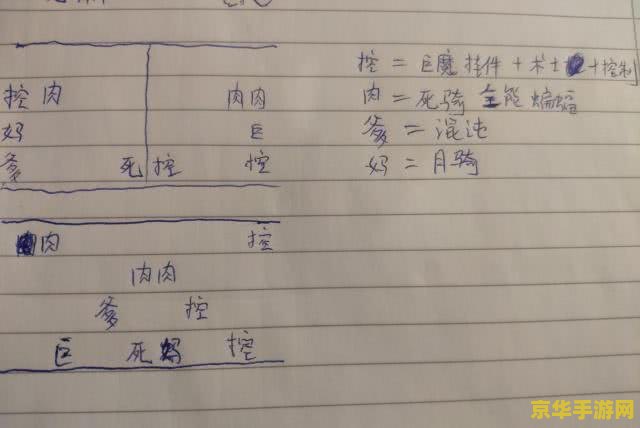 控肉 肉肉 控 = 巨魔挂件 + 术士 + 控制
妈 巨 肉 = 死骑 全能 蝙蝠
爹 死 控 控 爹 = 混沌
妈 = 月骑
肉 控
肉肉
爹 控
巨 死 妈 控
京华手游网